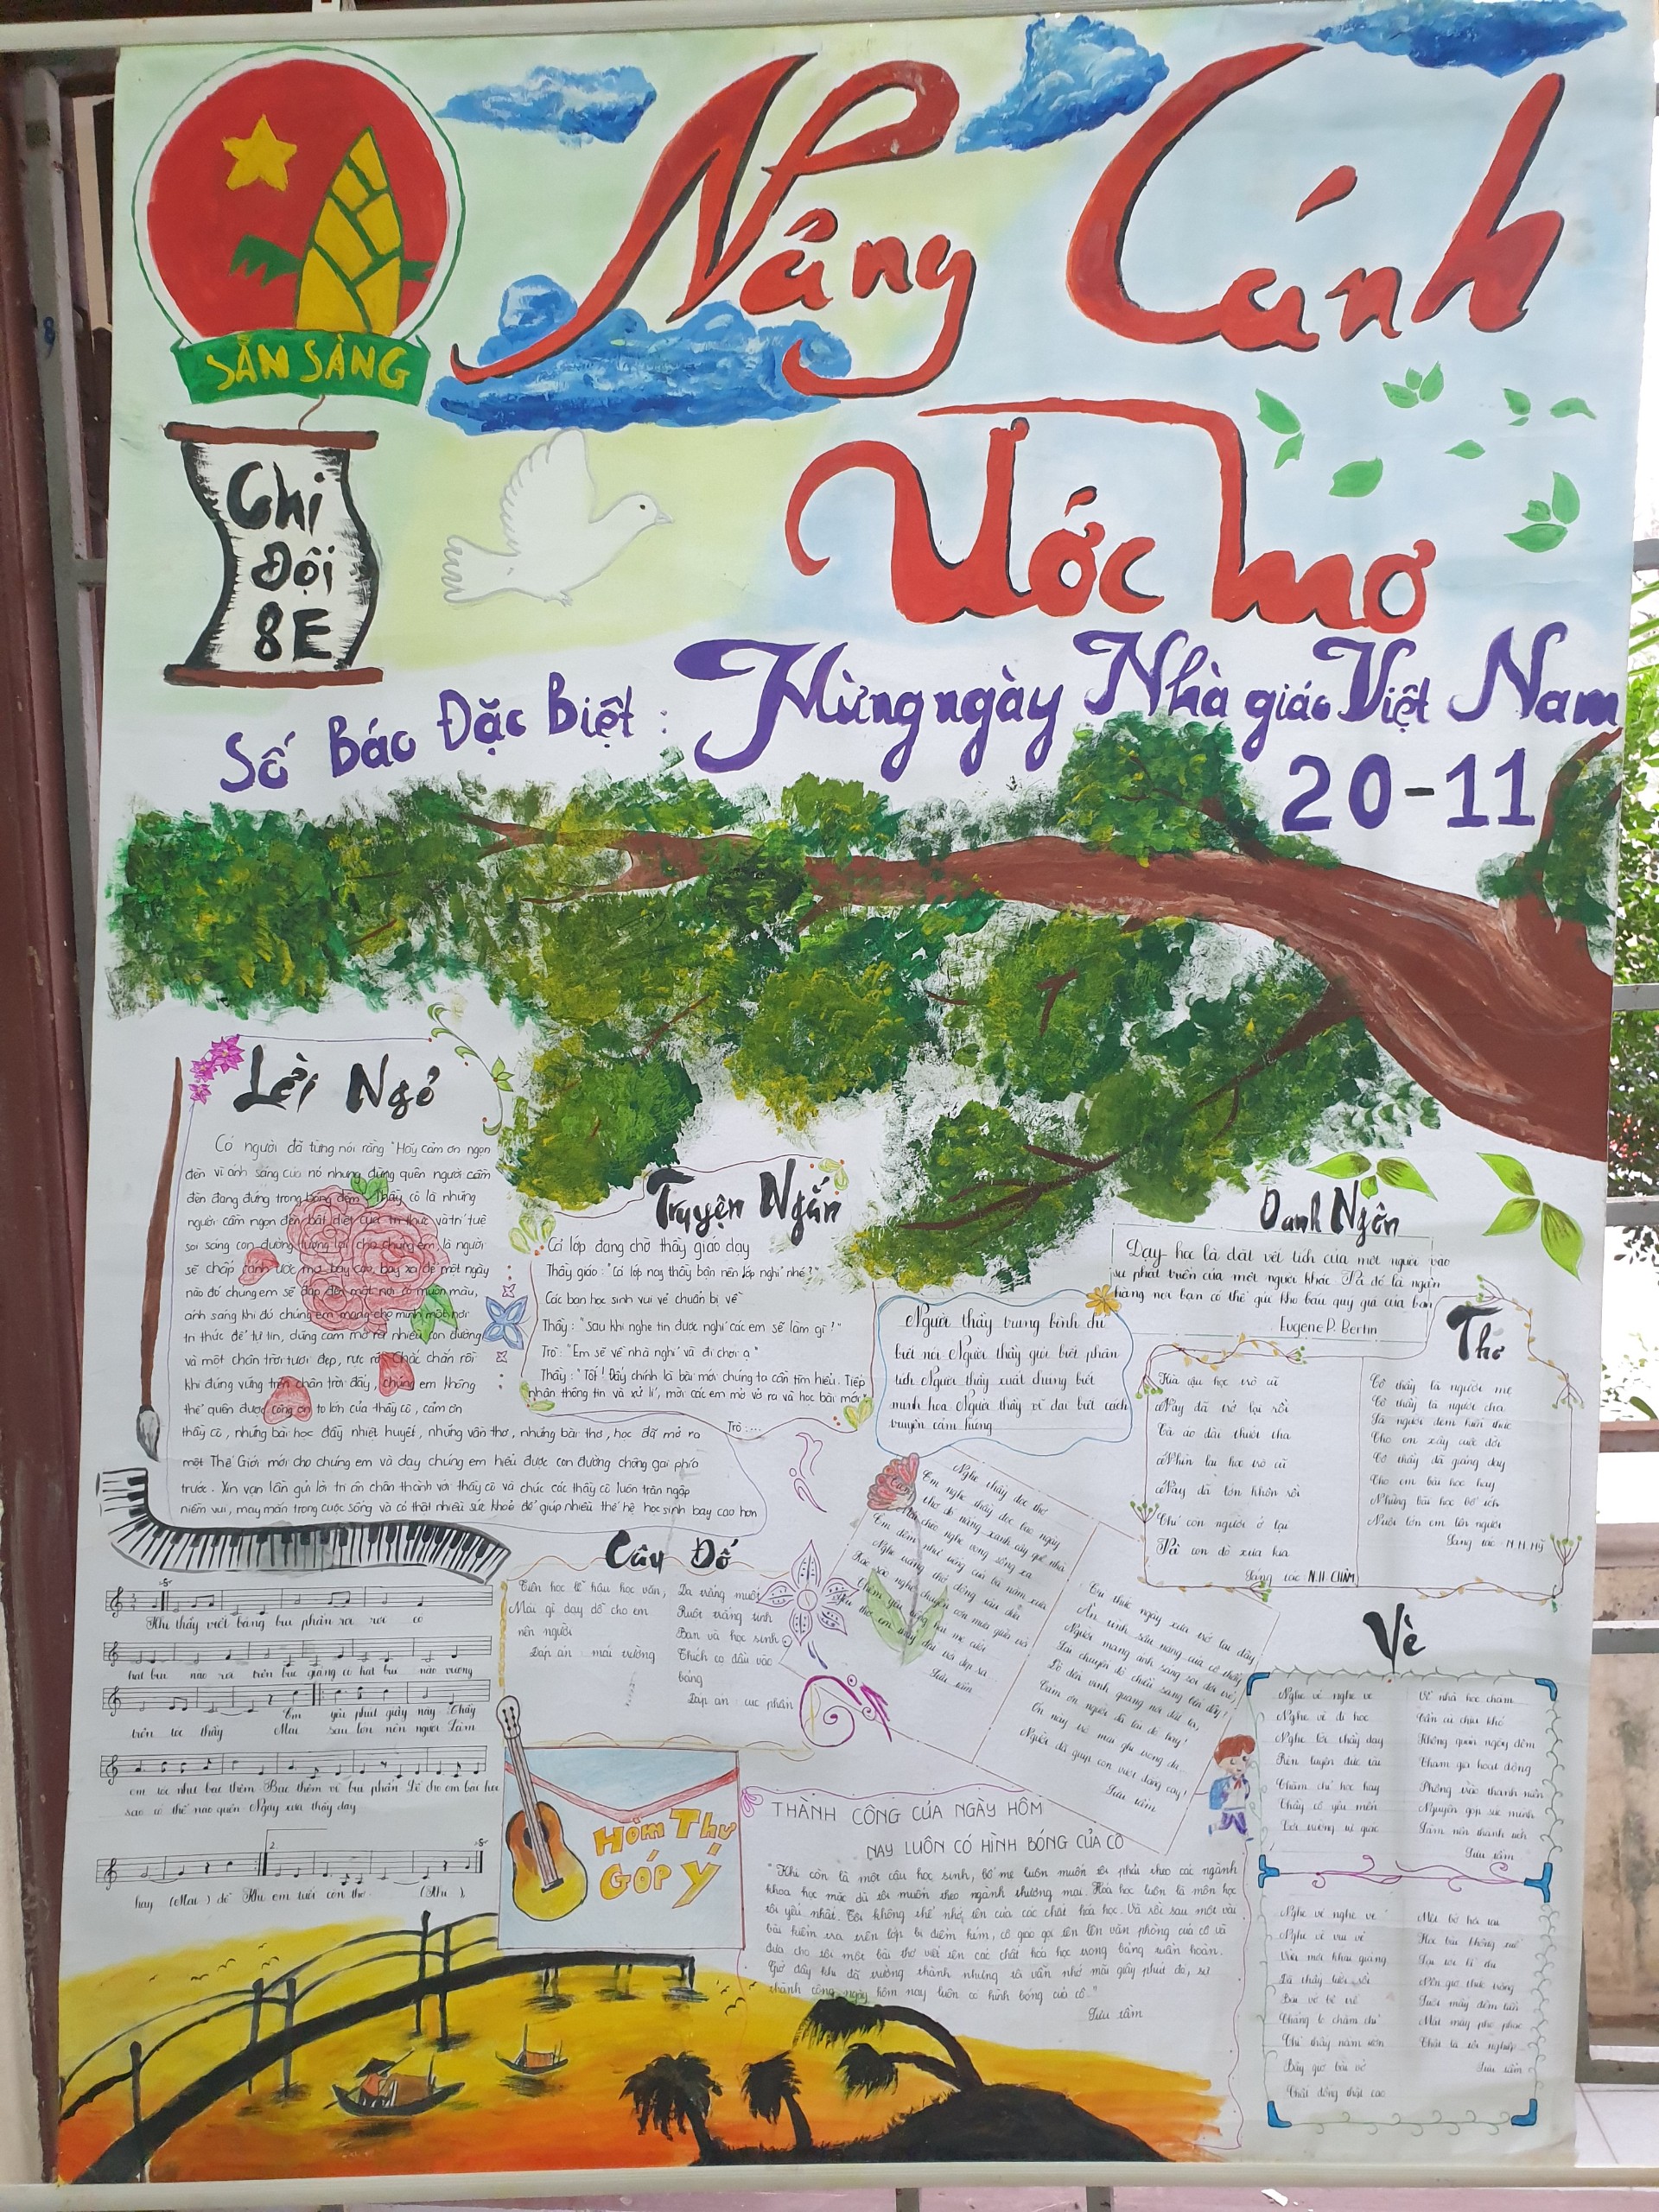 SẴN SÀNG
Nâng Cánh
Ước mơ
Chi
Đội
8E
Số Báo Đặc Biệt : Hừng ngày Nhà giáo Việt Nam
20-11
Lời Ngỏ
Có người đã từng nói rằng "Hãy cảm ơn ngọn
đèn vì ánh sáng của nó nhưng đừng quên người cầm
đèn đang đứng trong bóng đêm". Thầy cô là những
người cầm ngọn đèn bất diệt của tri thức và trí tuệ
soi sáng con đường tương lai cho chúng em, là người
sẽ chắp cánh ước mơ bay cao, bay xa để một ngày
nào đó chúng em sẽ đáp đến một nơi có muôn màu,
ánh sáng khi đó chúng em mang cho mình một nơi
tri thức để tự tin, dũng cảm mở ra nhiều con đường
và một chân trời tươi đẹp, rực rỡ. Chắc chắn rồi
khi đứng vững trên chân trời đấy, chúng em không
thể quên được công ơn to lớn của thầy cô, cảm ơn
thầy cô, những bài học đầy nhiệt huyết, những vần thơ, những bài thơ, học đã mở ra
một Thế Giới mới cho chúng em và dạy chúng em hiểu được con đường chông gai phía
trước. Xin vạn lần gửi lời tri ân chân thành với thầy cô và chúc các thầy cô luôn tràn ngập
niềm vui, may mắn trong cuộc sống và có thật nhiều sức khoẻ để giúp nhiều thế hệ học sinh bay cao hơn
Truyện Ngắn
Cả lớp đang chờ thầy giáo dạy
Thầy giáo: "Cả lớp nay thầy bận nên lớp nghỉ nhé?"
Các bạn học sinh vui vẻ chuẩn bị về
Thầy: "Sau khi nghe tin được nghỉ các em sẽ làm gì?"
Trò: "Em sẽ về nhà nghỉ và đi chơi ạ"
Thầy: "Tốt! Đấy chính là bài mới chúng ta cần tìm hiểu. Tiếp
nhận thông tin và xử lí", mời các em mở vở ra và học bài mới"
Trò: ...
Danh Ngôn
Dạy học là dấu vết tích của một người vào
sự phát triển của một người khác. Và đó là ngân
hàng nơi bạn có thể gửi kho báu quý giá của bạn
Eugene P. Bertin
Người thầy trung bình chỉ
biết nói Người thầy giỏi biết phân
tích Người thầy xuất chúng biết
minh hoạ Người thầy vĩ đại biết cách
truyền cảm hứng
Thơ
Này đã trở lại rồi
Tà áo dài thướt tha
Nhìn lại học trò cũ
Này đã lớn khôn rồi
Chỉ còn người ở lại
Và con đò xưa kia
Sáng tác N.H. CHÂM
Cô thầy là người mẹ
Cô thầy là người cha
Là người đem kiến thức
Cho em xây cuộc đời
Cô thầy đã giảng dạy
Cho em bài học hay
Những bài học bổ ích
Nuôi lớn em lên người
Sáng tác: N.H.Mỹ
Khi thầy viết bảng bụi phấn rơi rơi có
hạt bụi nào rơi trên bục giảng có hạt bụi nào vương
trên tóc thầy Em yêu phút giây này Thầy
Mai sau lớn nên người Làm
em tóc như bạc thêm Bạc thêm vì bụi phấn Để cho em bài học
sao có thể nào quên Ngày xưa thầy dạy
hay (Mai) dỗ Khi em tuổi còn thơ
Câu Đố
Tiên học lễ hậu học văn,
Mái gì dạy dỗ cho em
nên người
Đáp án : mái trường
Da trắng muốt
Ruột trắng tinh
Bạn và học sinh
Thích cọ đầu vào
bảng
Đáp án : cục phấn
Nghe thầy đọc thơ
Em nghe thầy đọc bao ngày
Thơ đỏ nắng xanh cây quê nhà
Mái chèo nghe vọng sông xa
Êm đêm như tiếng của bà năm xưa
Nghe trăng thở động tàu dừa
Rào rào nghe chuyển cơn mưa giữa trời
Sưu tầm
Ơn thức ngày xưa trở lại đây
Ân tình sâu nặng của cô thầy
Người mang ánh sáng soi đời trẻ,
Lái chuyến đò chiều sang bến đầy!
Cảm ơn người đã lái đò hay!
Ơn này trò mãi ghi trong dạ...
Người đã giúp con vượt đắng cay!
Sưu tầm
HÒM THƯ
GÓP Ý
THÀNH CÔNG CỦA NGÀY HÔM
NAY LUÔN CÓ HÌNH BÓNG CỦA CÔ
"Khi còn là một cậu học sinh, bố mẹ luôn muốn tôi phải theo các ngành
khoa học mặc dù tôi muốn theo ngành thương mại. Hoá học luôn là môn học
tôi yếu nhất. Tôi không thể nhớ tên của các chất hoá học. Và rồi sau một vài
bài kiểm tra trên lớp bị điểm kém, cô giáo gọi tên lên văn phòng của cô và
đưa cho tôi một bài thơ viết tên các chất hoá học trong bảng tuần hoàn.
Giờ đây khi đã trưởng thành nhưng tôi vẫn nhớ mãi giây phút đó, sự
thành công ngày hôm nay luôn có hình bóng của cô."
Sưu tầm
Vè
Nghe vẻ nghe ve
Nghe vè đi học
Nghe lời thầy dạy
Rèn luyện đức tài
Chăm chỉ học hay
Thầy cô yêu mến
Về nhà học chăm
Cần cù chịu khó
Không quản ngày đêm
Tham gia hoạt động
Phong trào thanh niên
Sưu tầm
Nghe vẻ nghe ve
Nghe vè vui vẻ
Vừa mới khai giảng
Đã thấy lười rồi
Chăng lo chăm chỉ
Bây giờ bài vở
Chất đống thật cao
Sưu tầm